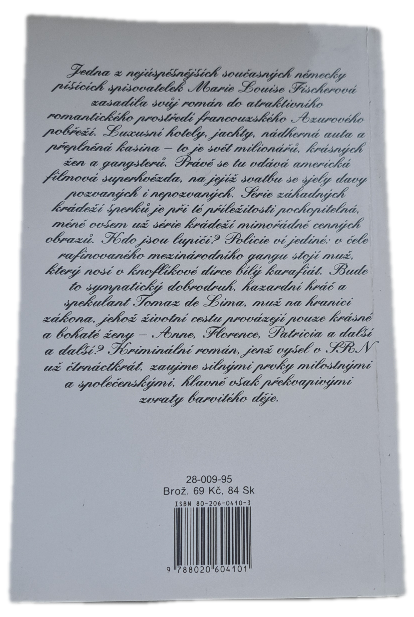 Jedna z nejúspěšnějších současných německy
píšících spisovatelek Marie Louise Fischerová
zasadila svůj román do atraktivního
romantického prostředí francouzského Azurového
pobřeží. Luxusní hotely, jachty, nádherná auta a
přeplněná kasina – to je svět milionářů, krásných
žen a gangsterů. Právě se tu vdává americká
filmová superhvězda, na jejíž svatbu se sjely davy
pozvaných i nepozvaných. Série záhadných
krádeží šperků je při té příležitosti pochopitelná,
méně ovšem už série krádeží mimořádně cenných
obrazů. Kdo jsou lupiči? Policie ví jediné: v čele
rafinovaného mezinárodního gangu stojí muž,
který nosí v knoflíkové dírce bílý karafiát. Bude
to sympatický dobrodruh, hazardní hráč a
spekulant Tomaz de Lima, muž na hranici
zákona, jehož životní cestu provázejí pouze krásné
a bohaté ženy – Anne, Florence, Patricia a další
a další? Kriminální román, jenž vyšel v SRN
už čtrnáctkrát, zaujme silnými prvky milostnými
a společenskými, hlavně však překvapivými
zvraty barvitého děje.
28-009-95
Brož. 69 Kč, 84 Sk
ISBN 80-206-0410-1
9 788020 604101